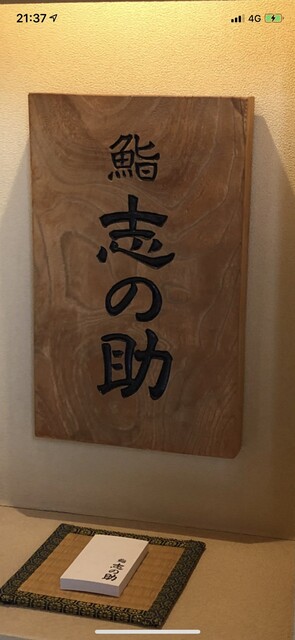 21:37
4G
鮨
志の助
鮨
志の助